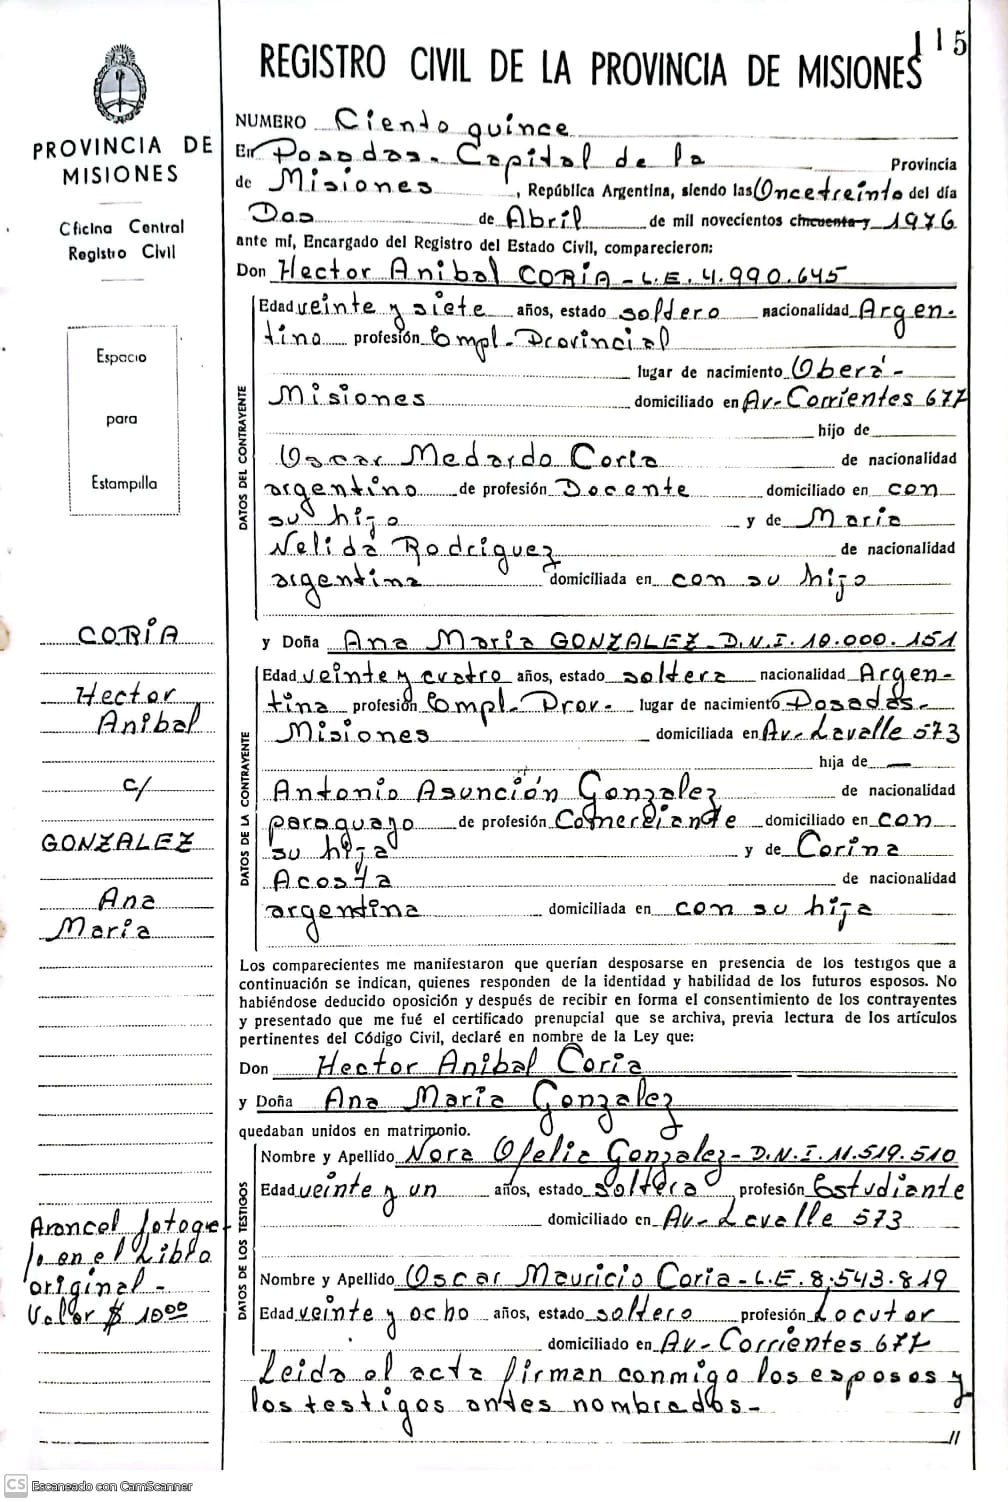 115
REGISTRO CIVIL DE LA PROVINCIA DE MISIONES
PROVINCIA DE
MISIONES
Oficina Central
Registro Civil
Espacio
para
Estampilla
CORIA
Hector
Anibal
c/
GONZALEZ
Ana
Maria
Arancel fotogra-
fo en el Libro
original -
Valor $ 10⁰⁰
NUMERO Ciento quince
En Posadas - Capital de la Provincia
de Misiones, República Argentina, siendo las Once treinta del día
Dos de Abril de mil novecientos cincuenta y 1976
ante mí, Encargado del Registro del Estado Civil, comparecieron:
Don Hector Anibal CORIA - L.E. 4.990.645
DATOS DEL CONTRAYENTE
Edad veinte y siete años, estado soltero nacionalidad Argen-
tino profesión Empl- Provincial
lugar de nacimiento Oberá -
Misiones domiciliado en Av- Corrientes 677
hijo de
Oscar Medardo Coria de nacionalidad
argentino de profesión Docente domiciliado en con
su hijo y de Maria
Nelida Rodriguez de nacionalidad
argentina domiciliada en con su hijo
y Doña Ana Maria GONZALEZ - D.N.I. 10.000.151
DATOS DE LA CONTRAYENTE
Edad veinte y cuatro años, estado soltera nacionalidad Argen-
tina profesión Empl- Prov- lugar de nacimiento Posadas -
Misiones domiciliada en Av- Lavalle 573
hija de —
Antonio Asunción Gonzalez de nacionalidad
paraguayo de profesión Comerciante domiciliado en con
su hija y de Corina
Acosta de nacionalidad
argentina domiciliada en con su hija
Los comparecientes me manifestaron que querían desposarse en presencia de los testigos que a
continuación se indican, quienes responden de la identidad y habilidad de los futuros esposos. No
habiéndose deducido oposición y después de recibir en forma el consentimiento de los contrayentes
y presentado que me fué el certificado prenupcial que se archiva, previa lectura de los artículos
pertinentes del Código Civil, declaré en nombre de la Ley que:
Don Hector Anibal Coria
y Doña Ana Maria Gonzalez
quedaban unidos en matrimonio.
DATOS DE LOS TESTIGOS
Nombre y Apellido Nora Ofelia Gonzalez - D.N.I. 11.519.510
Edad veinte y un años, estado soltera profesión Estudiante
domiciliado en Av- Lavalle 573
Nombre y Apellido Oscar Mauricio Coria - L.E. 8.543.819
Edad veinte y ocho años, estado soltero profesión Locutor
domiciliado en Av- Corrientes 677
Leida el acta firman conmigo los esposos y
los testigos antes nombrados -
//
CS Escaneado con CamScanner